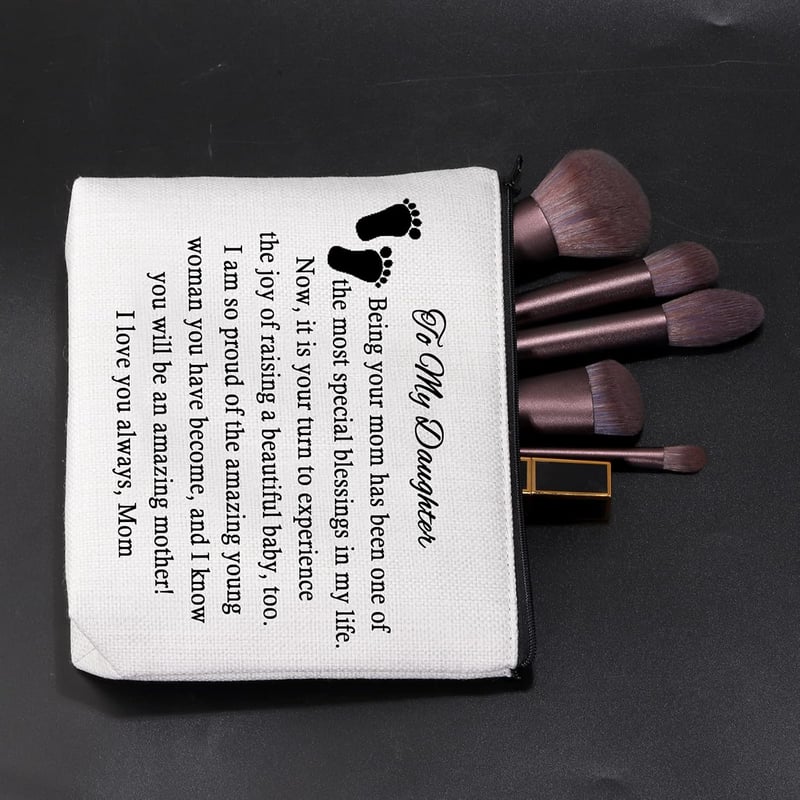 To My Daughter
Being your mom has been one of
the most special blessings in my life.
Now, it is your turn to experience
the joy of raising a beautiful baby, too.
I am so proud of the amazing young
woman you have become, and I know
you will be an amazing mother!
I love you always, Mom